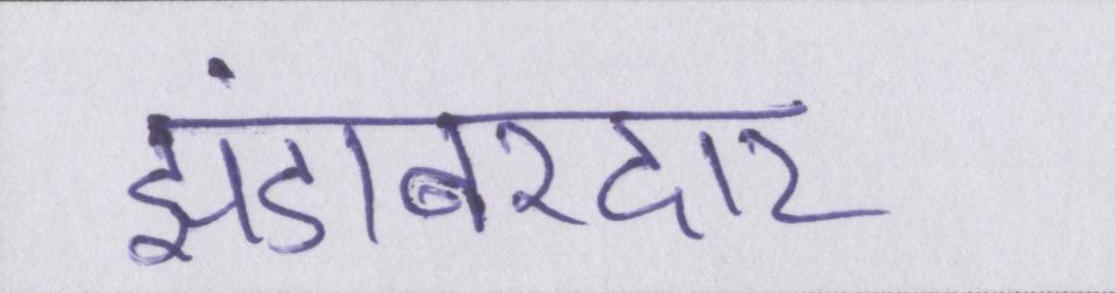 झंडाबरदार